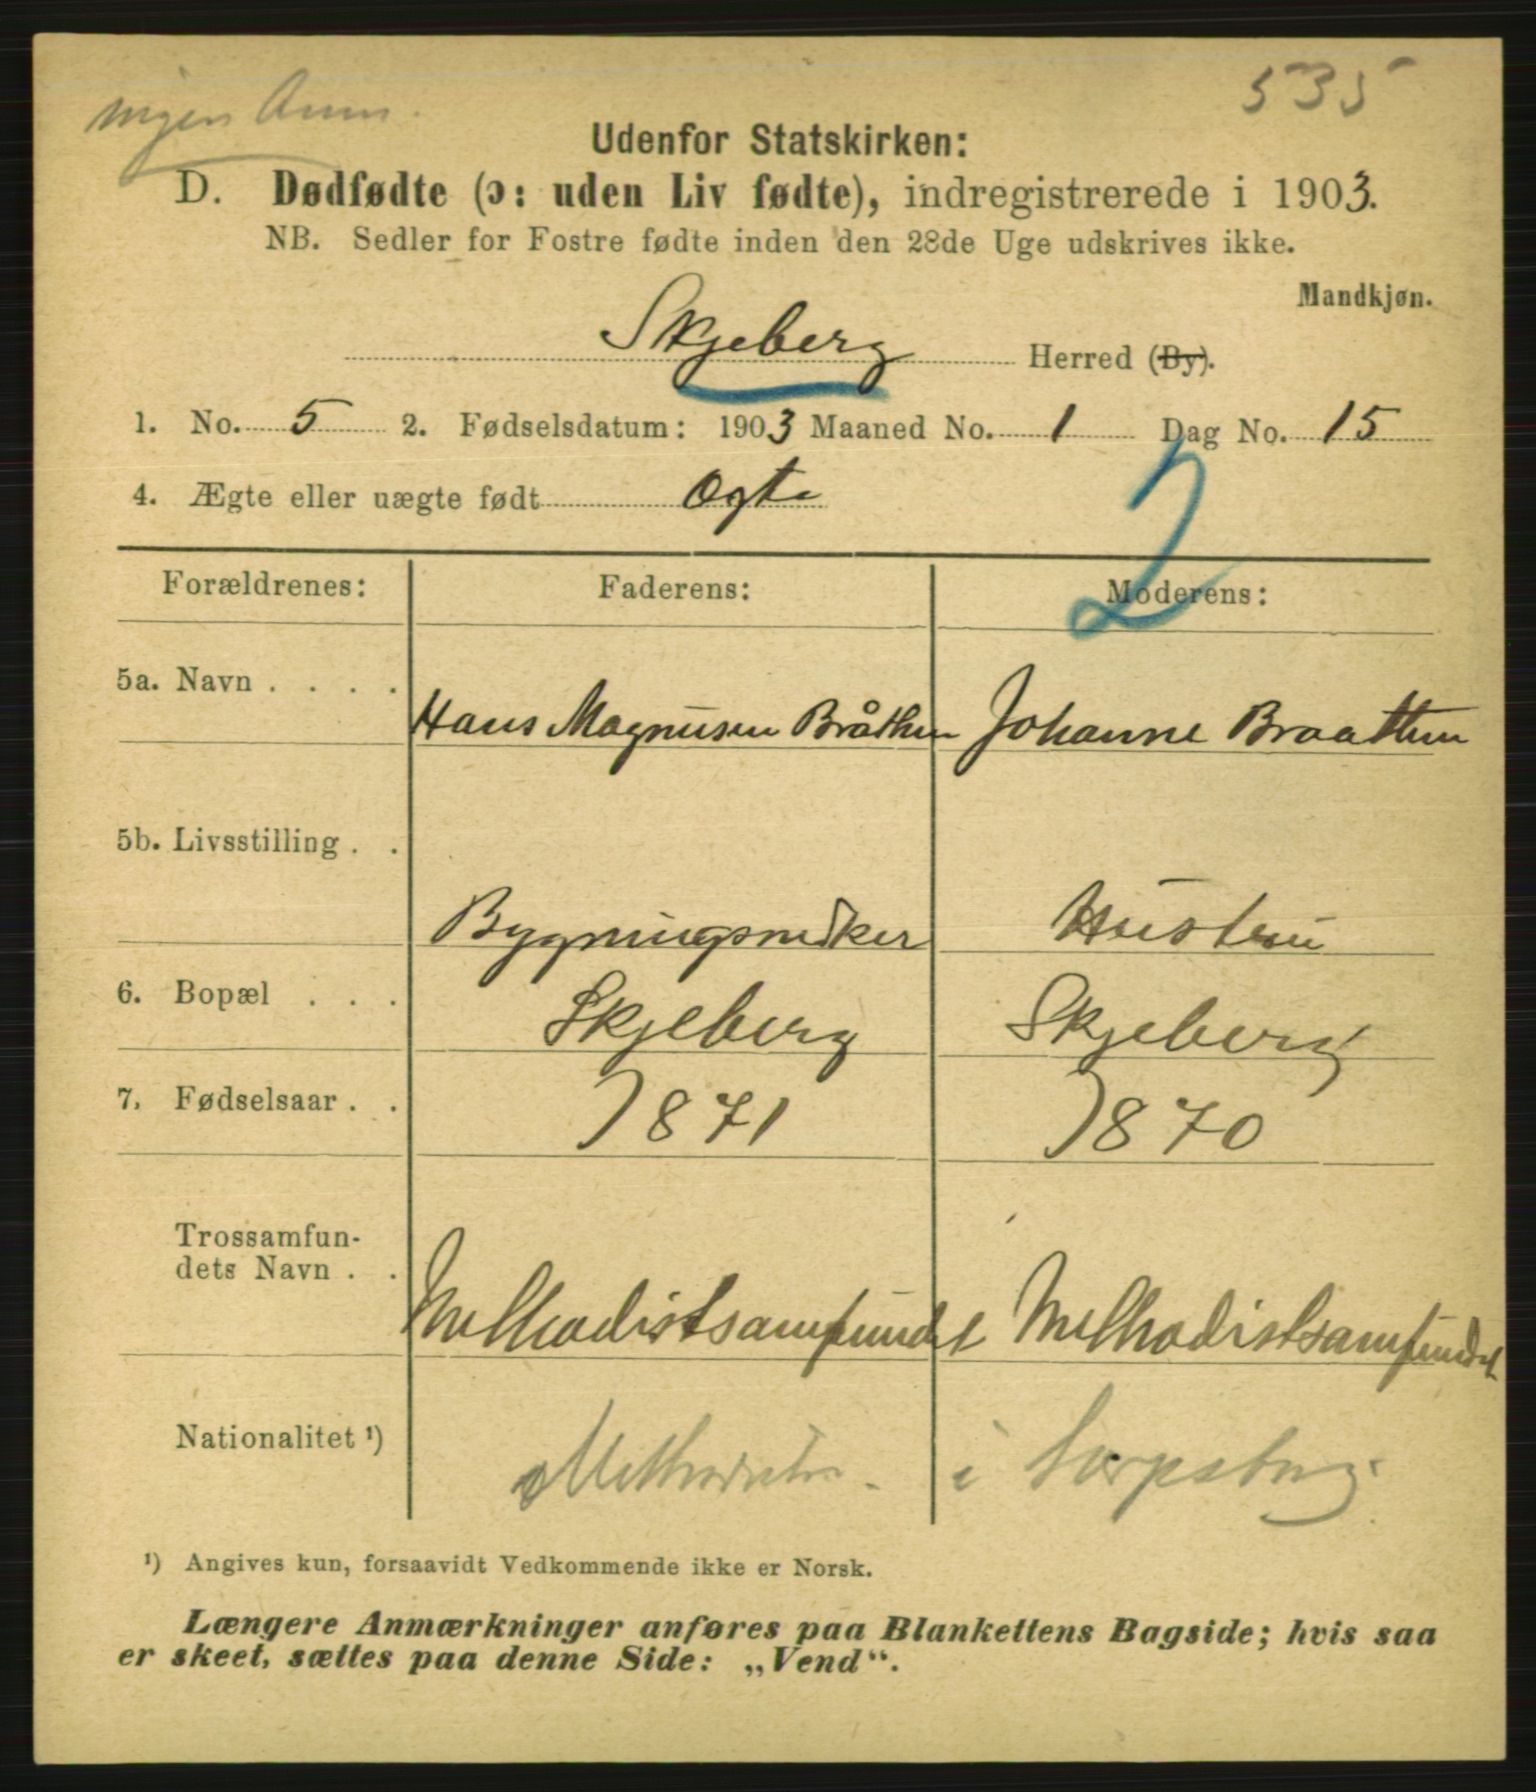 535
ingen Anm.
Udenfor Statskirken:
D. Dødfødte (ɔ: uden Liv fødte), indregistrerede i 1903.
NB. Sedler for Fostre fødte inden den 28de Uge udskrives ikke.
Mandkjøn.
Skjeberg Herred (By).
1. No. 5 2. Fødselsdatum: 1903 Maaned No. 1 Dag No. 15
4. Ægte eller uægte født Ægte
2
Forældrenes: Faderens: Moderens:
5a. Navn . . . . Hans Magnusen Bråthen Johanne Braathen
5b. Livsstilling . . Bygningssnedker Hustru
6. Bopæl . . . Skjeberg Skjeberg
7. Fødselsaar . . 1871 1870
Trossamfun-
dets Navn . . Methodistsamfundet Methodistsamfundet
Nationalitet ¹) i Sarpsborg.
¹) Angives kun, forsaavidt Vedkommende ikke er Norsk.
Længere Anmærkninger anføres paa Blankettens Bagside; hvis saa
er skeet, sættes paa denne Side: „Vend“.